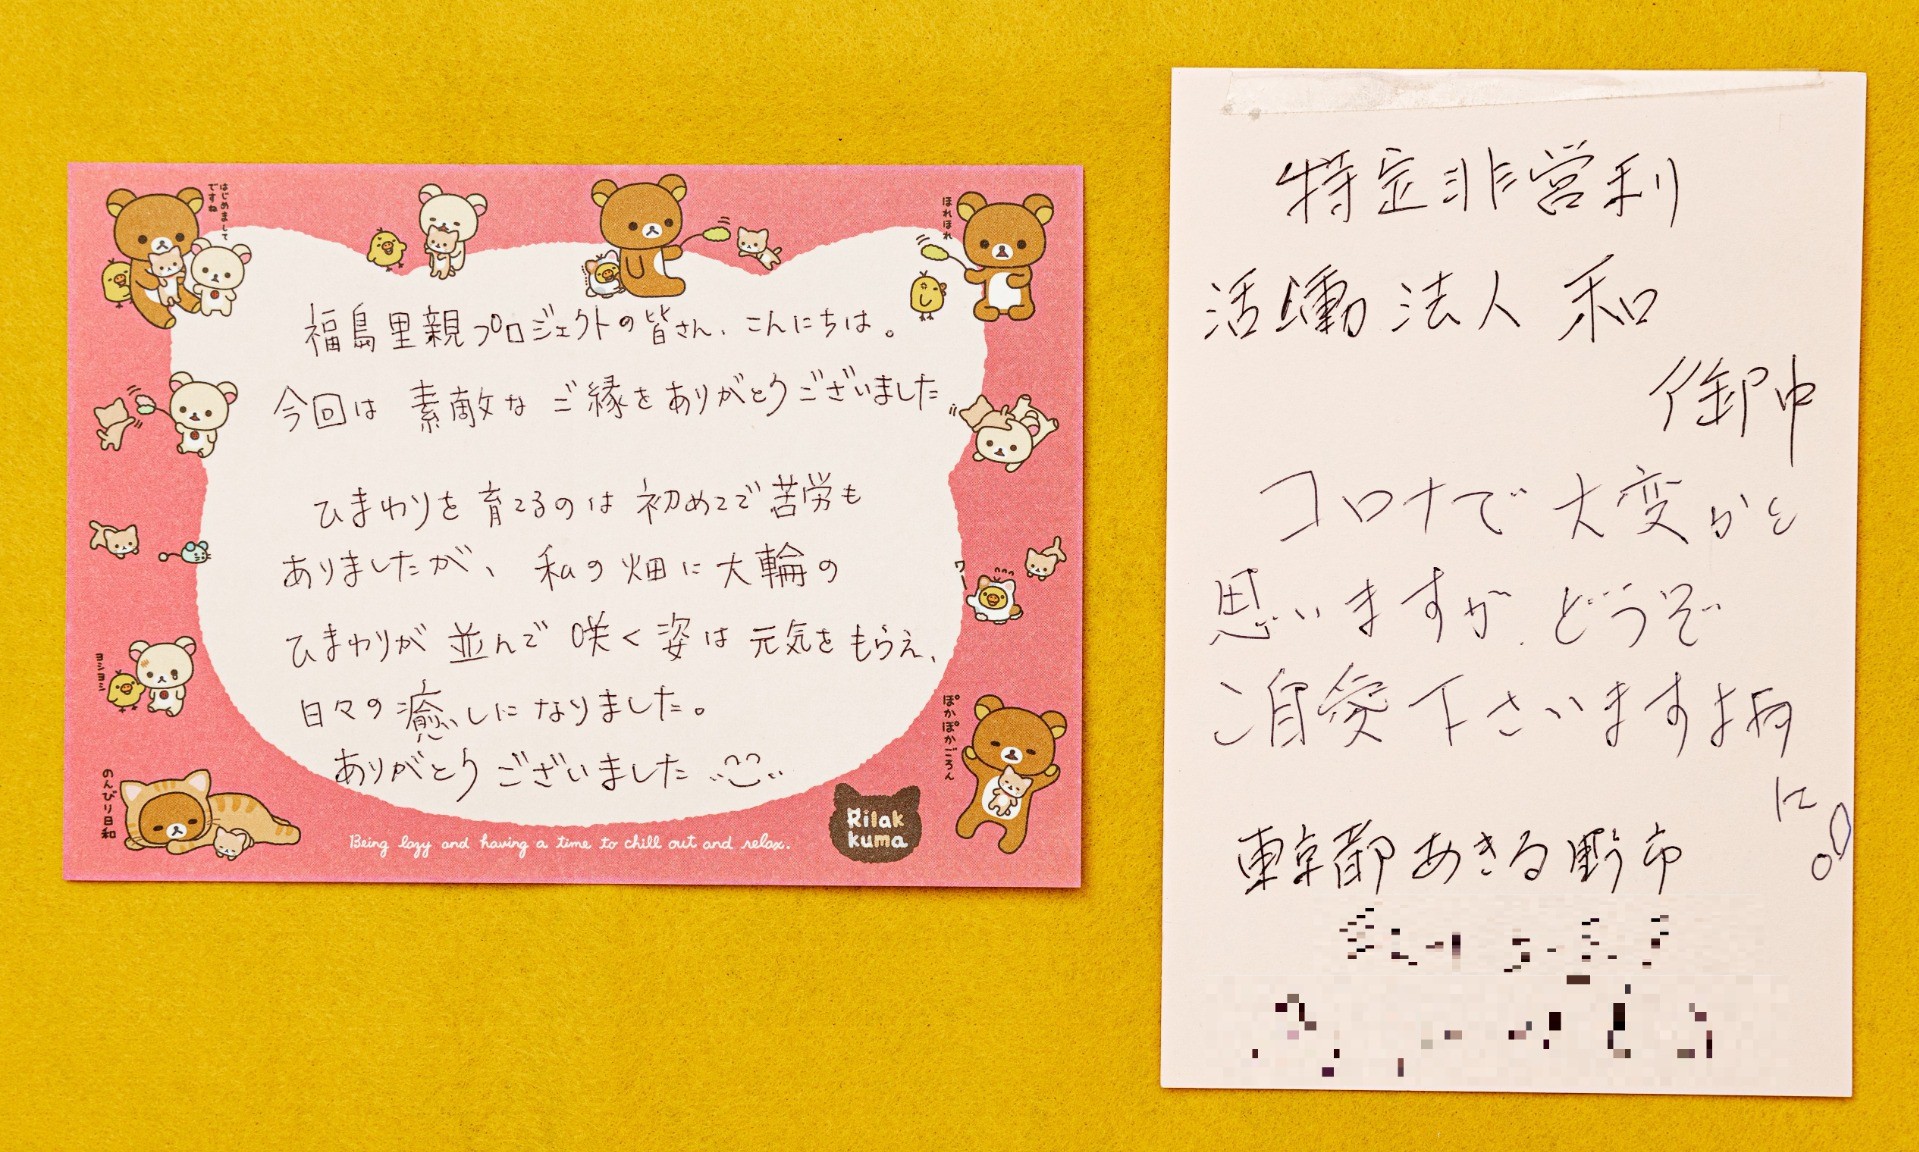 はじめまして
ですね
ほれほれ
福島里親プロジェクトの皆さん、こんにちは。
今回は素敵なご縁をありがとうございました
ひまわりを育てるのは初めてで苦労も
ありましたが、私の畑に大輪の
ひまわりが並んで咲く姿は元気をもらえ、
日々の癒しになりました。
ありがとうございました
ワー
ヨシヨシ
ぽかぽかごろん
のんびり日和
Being lazy and having a time to chill out and relax.
Rilak
kuma
特定非営利
活動法人 和
御中
コロナで大変かと
思いますが、どうぞ
ご自愛下さいますよう
に!
東京都あきる野市